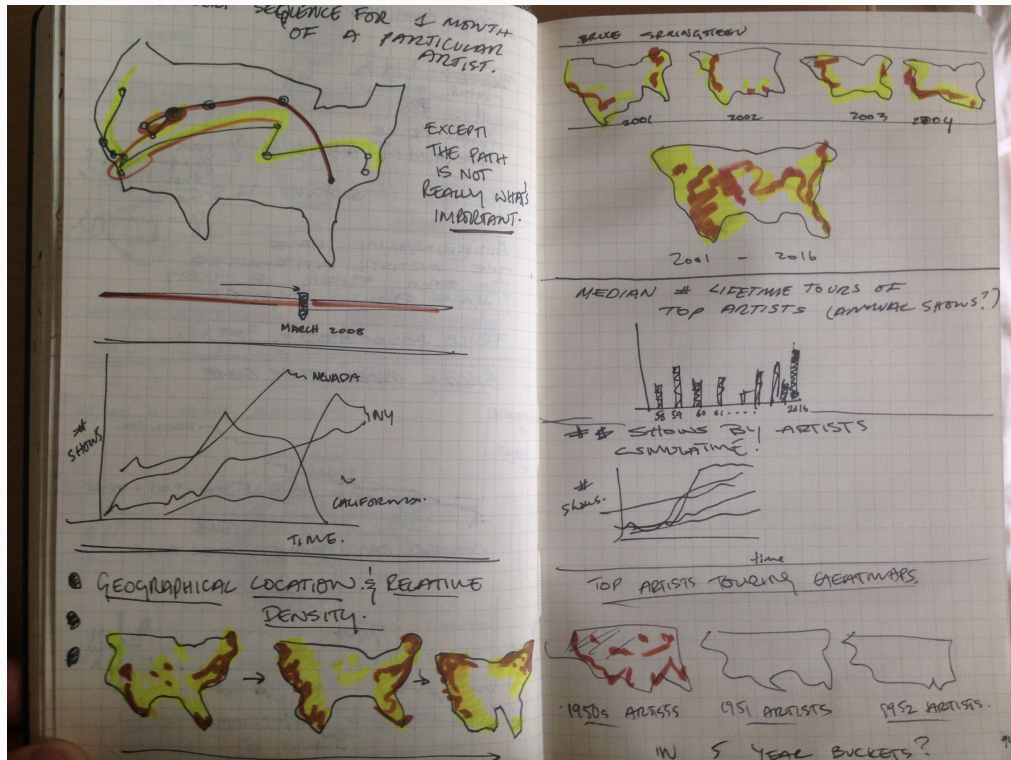 SEQUENCE FOR 1 MONTH
OF A PARTICULAR
ARTIST.
EXCEPT
THE PATH
IS NOT
REALLY WHAT'S
IMPORTANT.
MARCH 2008
NEVADA
NY
CALIFORNIA.
#
SHOWS
TIME.
GEOGRAPHICAL LOCATION & RELATIVE
DENSITY.
BRUCE SPRINGSTEEN
2001
2002
2003
2004
2001 - 2016
MEDIAN # LIFETIME TOURS OF
TOP ARTISTS (ANNUAL SHOWS?)
58 59 60 61 .... 2016
# SHOWS BY ARTISTS
CUMULATIVE.
#
SHOWS.
time
TOP ARTISTS TOURING HEATMAPS
1950s ARTISTS
1951 ARTISTS
1952 ARTISTS.
IN 5 YEAR BUCKETS?